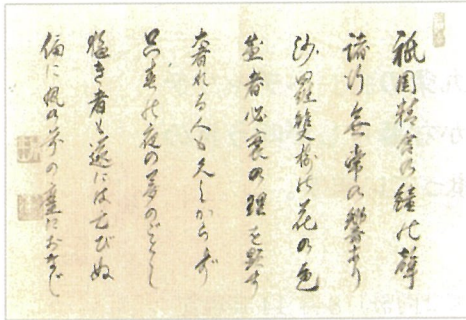 祇園精舎の鐘の聲
諸行無常の響あり
沙羅雙樹の花の色
盛者必衰の理を顕す
奢れる人も久しからず
只春の夜の夢のごとし
猛き者も遂には亡びぬ
偏に風の前の塵におなじ